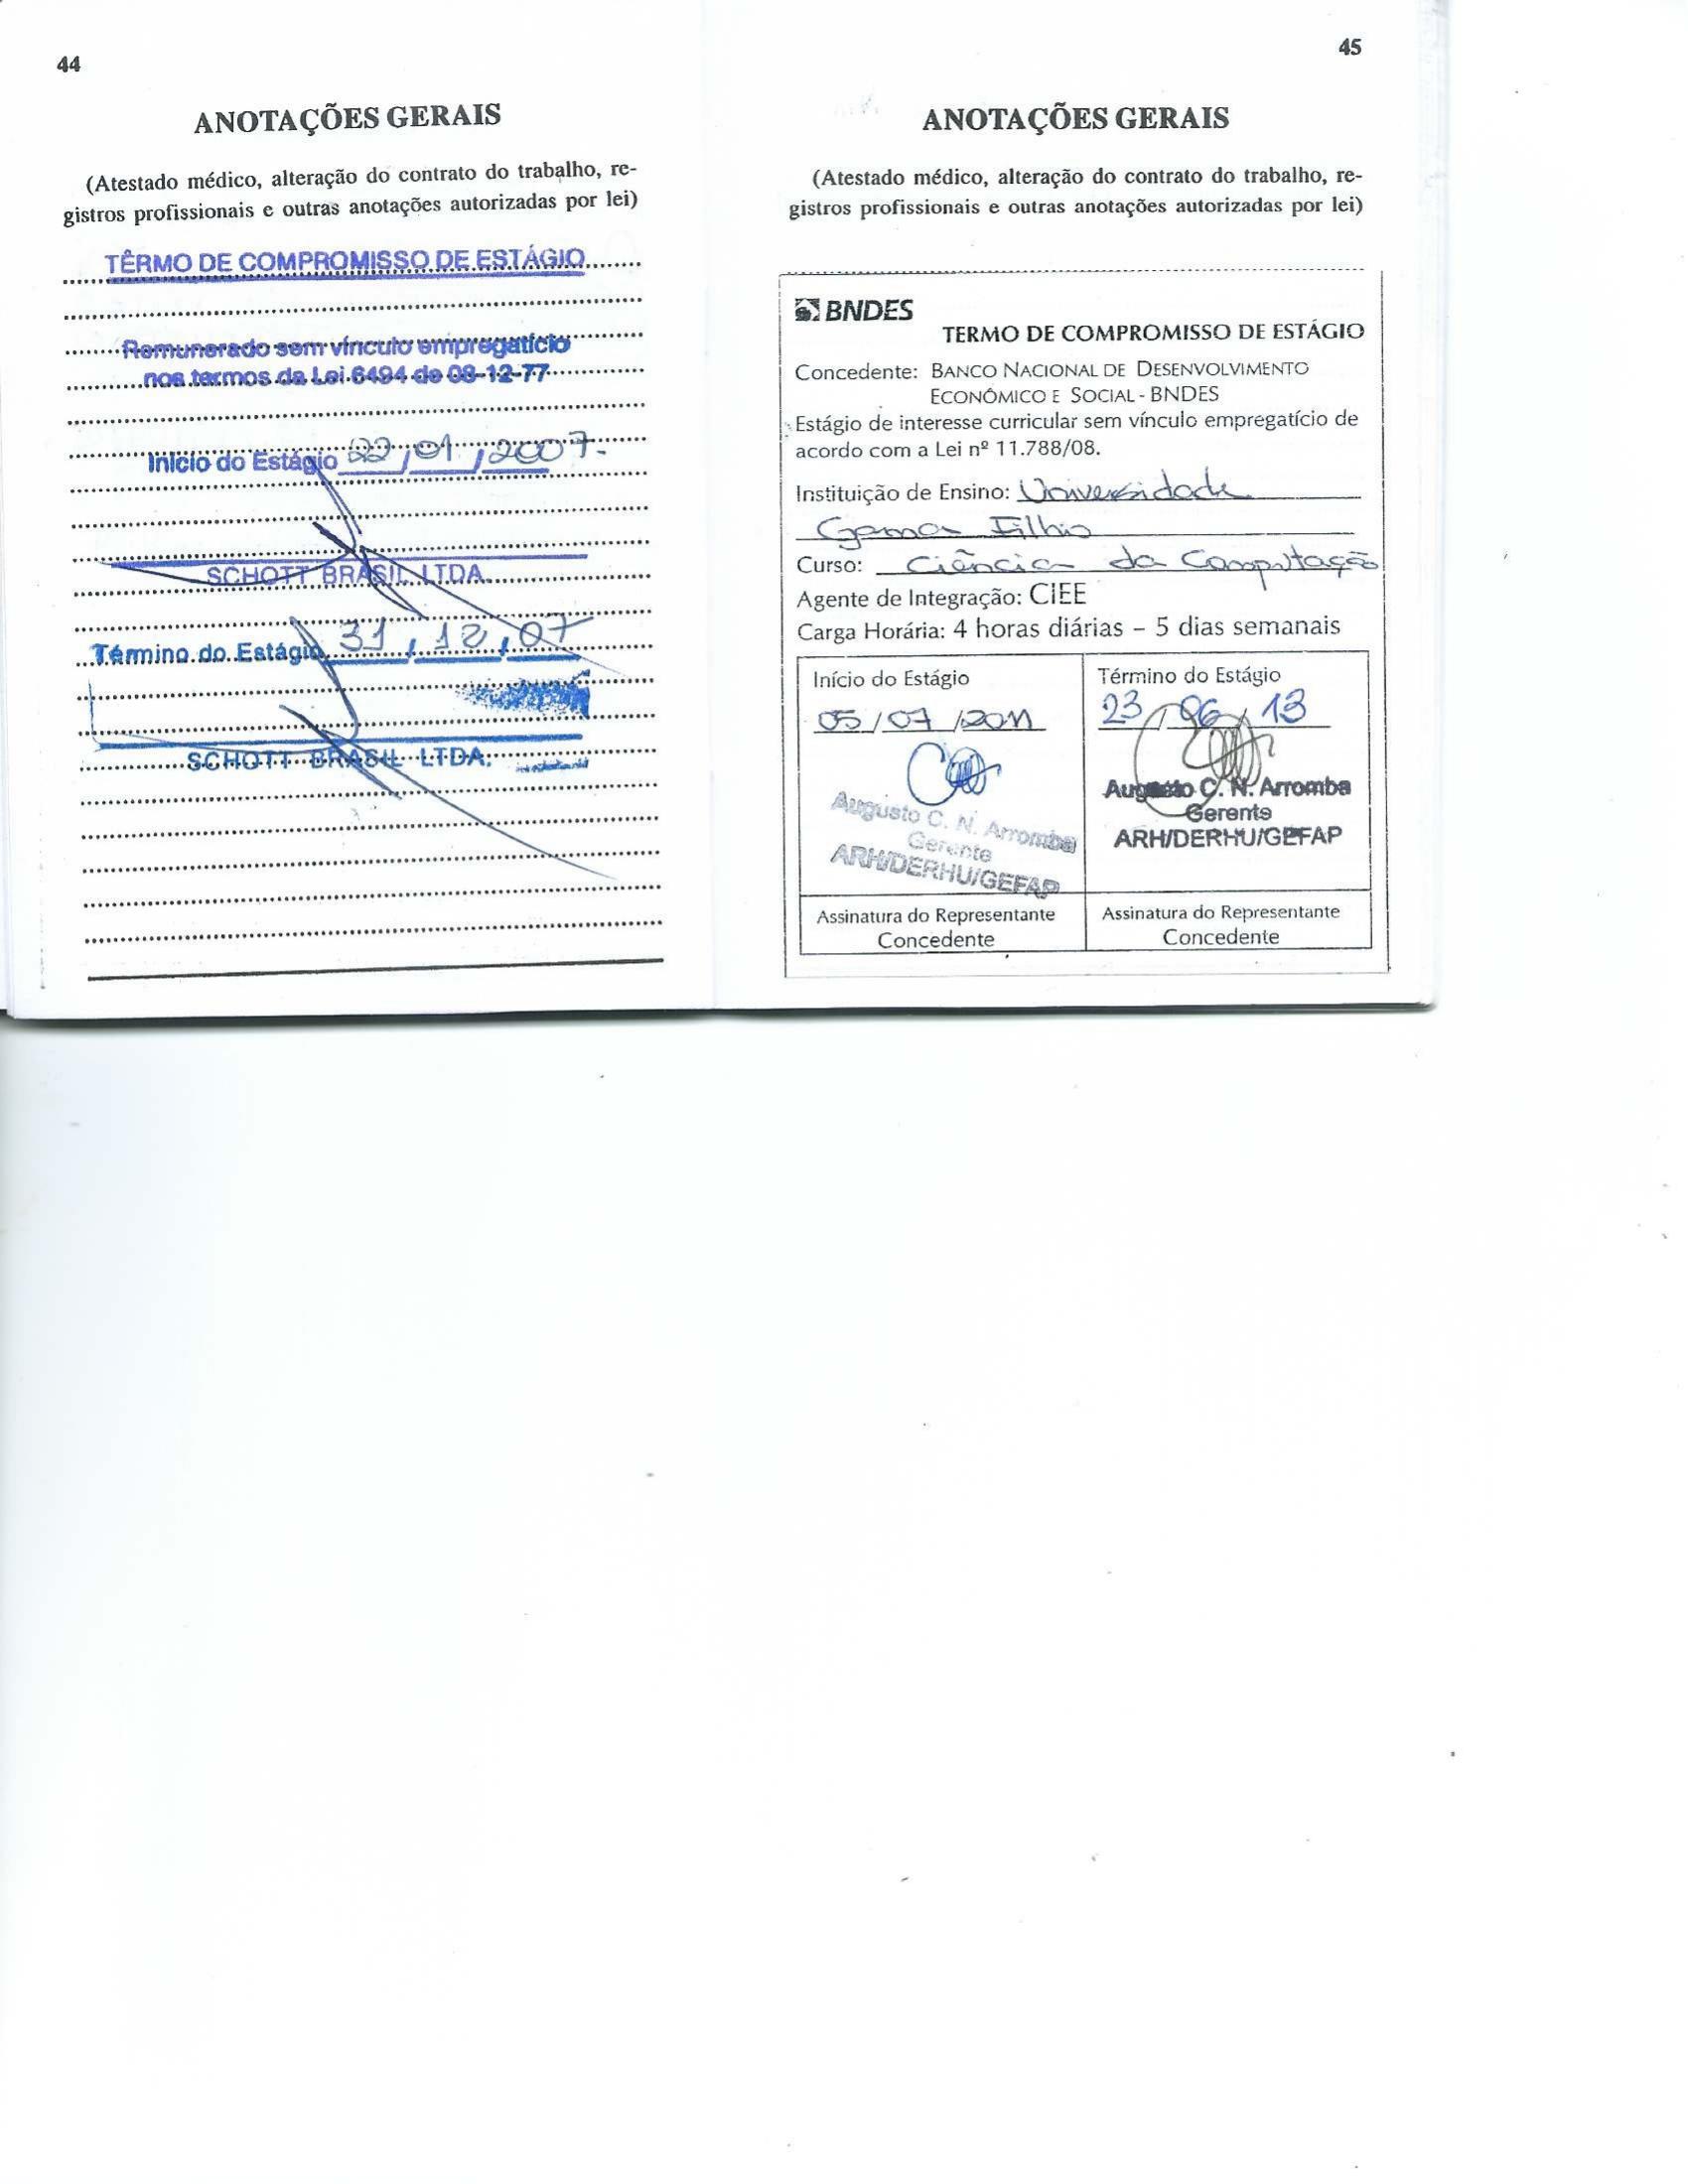 44
ANOTAÇÕES GERAIS
(Atestado médico, alteração do contrato do trabalho, re-
gistros profissionais e outras anotações autorizadas por lei)
TÊRMO DE COMPROMISSO DE ESTÁGIO
Remunerado sem vínculo empregatício
nos termos da Lei 6494 de 08-12-77
Início do Estágio 22/01/2007.
SCHOTT BRASIL LTDA.
Término do Estágio 31/12/07
SCHOTT BRASIL LTDA.
45
ANOTAÇÕES GERAIS
(Atestado médico, alteração do contrato do trabalho, re-
gistros profissionais e outras anotações autorizadas por lei)
BNDES
TERMO DE COMPROMISSO DE ESTÁGIO
Concedente: BANCO NACIONAL DE DESENVOLVIMENTO
ECONÔMICO E SOCIAL - BNDES
Estágio de interesse curricular sem vínculo empregatício de
acordo com a Lei nº 11.788/08.
Instituição de Ensino: Universidade
Gama Filho
Curso: Ciência da Computação
Agente de Integração: CIEE
Carga Horária: 4 horas diárias – 5 dias semanais
Início do Estágio
05/07/2011
Augusto C. N. Arromba
Gerente
ARH/DERHU/GEFAP
Assinatura do Representante
Concedente
Término do Estágio
23/06/13
Augusto C. N. Arromba
Gerente
ARH/DERHU/GEFAP
Assinatura do Representante
Concedente